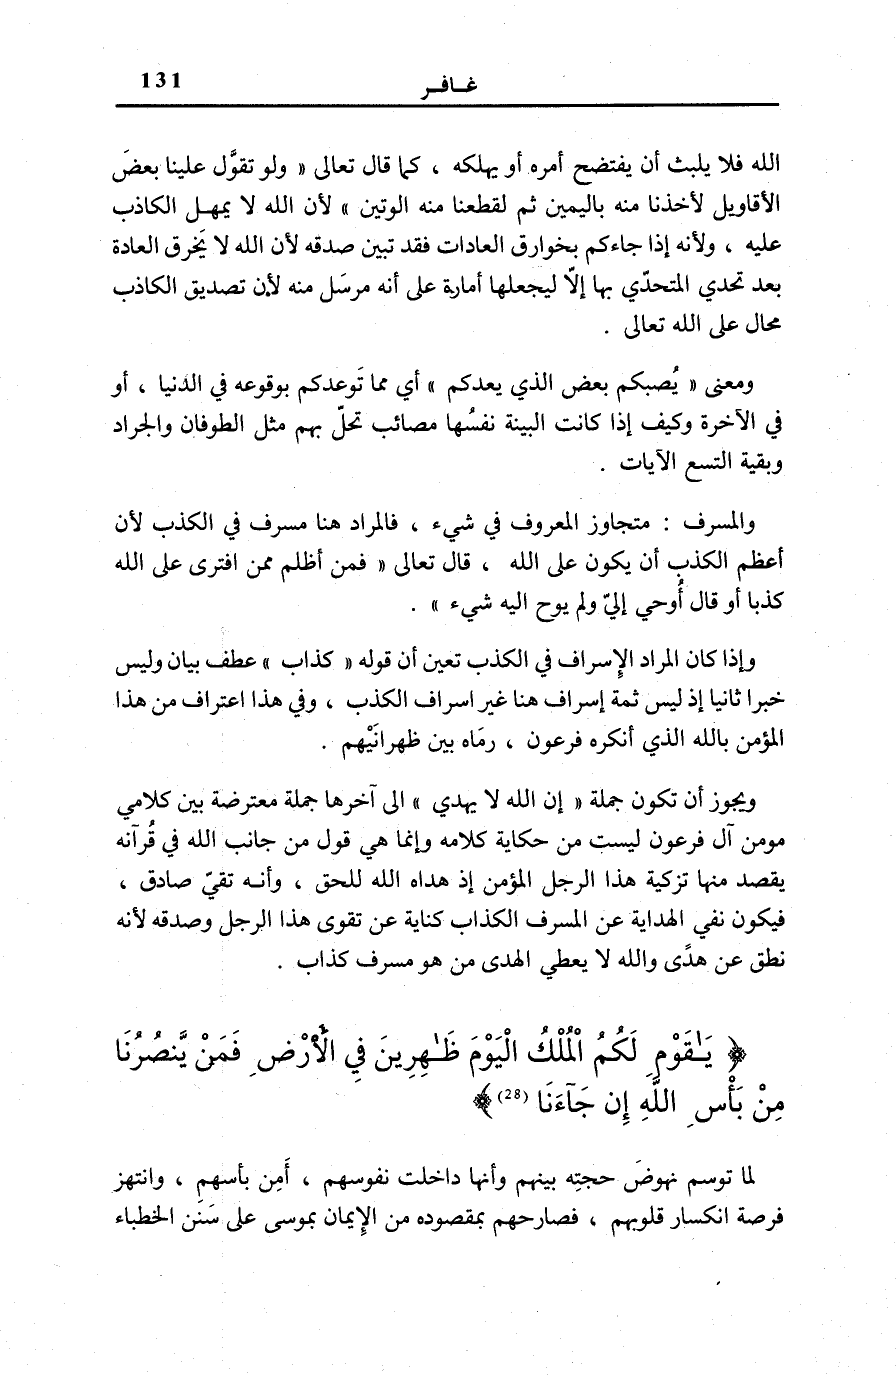 131
غـافـر
الله فلا يلبث أن يفتضح أمره أو يهلكه ، كما قال تعالى « ولو تقوَّل علينا بعضَ
الأقاويل لأخذنا منه باليمين ثم لقطعنا منه الوتين » لأن الله لا يمهـل الكاذب
عليه ، ولأنه إذا جاءكم بخوارق العادات فقد تبين صدقه لأن الله لا يَخرق العادة
بعد تحدي المتحدّي بها إلّا ليجعلها أمارة على أنه مرسَل منه لأن تصديق الكاذب
محال على الله تعالى .
ومعنى « يُصبكم بعض الذي يعدكم » أي مما تَوعدكم بوقوعه في الدنيا ، أو
في الآخرة وكيف إذا كانت البينة نفسُها مصائب تحلّ بهم مثل الطوفان والجراد
وبقية التسع الآيات .
والمسرف : متجاوز المعروف في شيء ، فالمراد هنا مسرف في الكذب لأن
أعظم الكذب أن يكون على الله ، قال تعالى « فمن أظلم ممن افترى على الله
كذبا أو قال أُوحي إليّ ولم يوح اليه شيء » .
وإذا كان المراد الإسراف في الكذب تعين أن قوله « كذاب » عطف بيان وليس
خبرا ثانيا إذ ليس ثمة إسراف هنا غير اسراف الكذب ، وفي هذا اعتراف من هذا
المؤمن بالله الذي أنكره فرعون ، رمَاه بين ظهرانَيْهم .
ويجوز أن تكون جملة « إن الله لا يهدي » الى آخرها جملة معترضة بين كلامي
مومن آل فرعون ليست من حكاية كلامه وإنما هي قول من جانب الله في قُرآنه
يقصد منها تزكية هذا الرجل المؤمن إذ هداه الله للحق ، وأنـه تقيّ صادق ،
فيكون نفي الهداية عن المسرف الكذاب كناية عن تقوى هذا الرجل وصدقه لأنه
نطق عن هدًى والله لا يعطي الهدى من هو مسرف كذاب .
﴿ يَـٰقَوْمِ لَكُمُ الْمُلْكُ الْيَوْمَ ظَـٰهِرِينَ فِي الْأَرْضِ فَمَنْ يَّنصُرُنَا
مِنْ بَأْسِ اللَّهِ إِن جَآءَنَا (28) ﴾
لما توسم نهوضَ حجتِه بينهم وأنها داخلت نفوسهم ، أَمِن بأسهم ، وانتهز
فرصة انكسار قلوبهم ، فصارحهم بمقصوده من الإيمان بموسى على سَنَن الخطباء